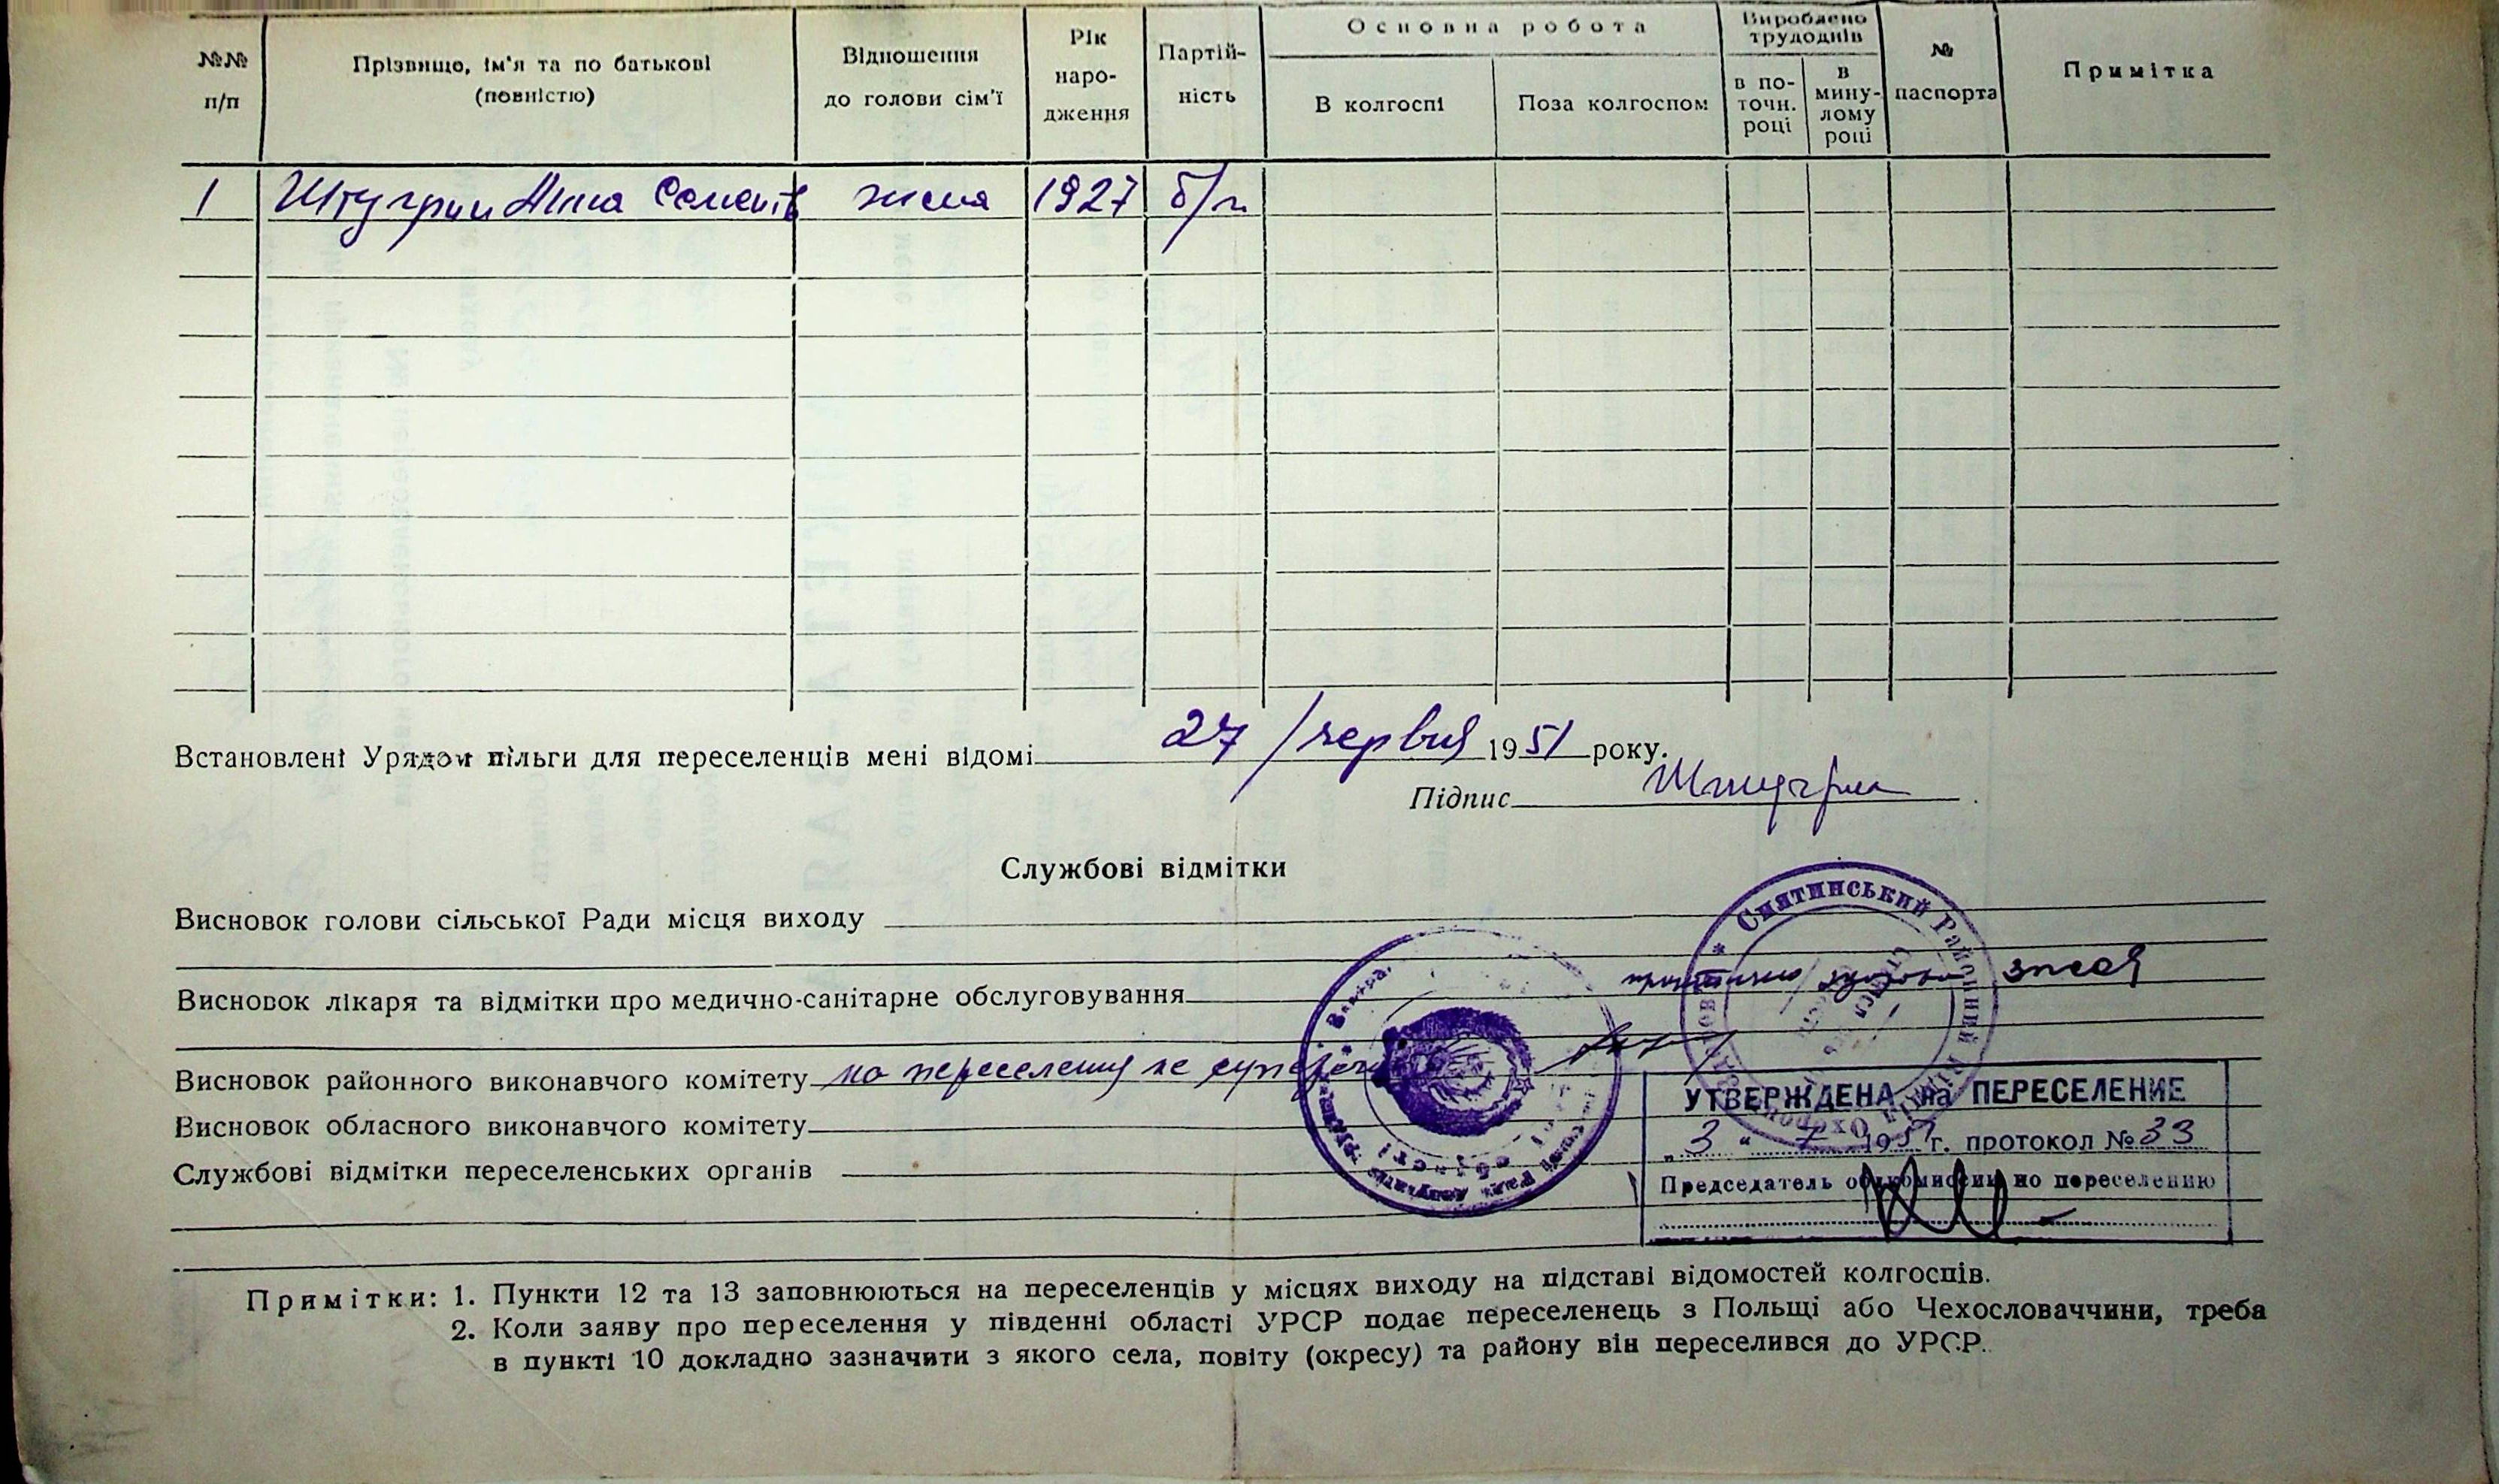 №№ п/п
Прізвище, ім'я та по батькові (повністю)
Відношення до голови сім'ї
Рік народження
Партійність
Основна робота
В колгоспі
Поза колгоспом
Вироблено трудоднів
в поточн. році
в минулому році
№ паспорта
Примітка
1 Штугрин Анна Семенів жена 1927 б/п
Встановлені Урядом пільги для переселенців мені відомі 27/червня 1951 року.
Підпис Штугрин
Службові відмітки
Висновок голови сільської Ради місця виходу
Висновок лікаря та відмітки про медично-санітарне обслуговування
Висновок районного виконавчого комітету на переселення не
Висновок обласного виконавчого комітету
Службові відмітки переселенських органів
Снятинський Районний
УТВЕРЖДЕНА на ПЕРЕСЕЛЕНИЕ
„3" 7 1951 г. протокол № 33
Председатель облкомиссии по переселению
Примітки: 1. Пункти 12 та 13 заповнюються на переселенців у місцях виходу на підставі відомостей колгоспів.
2. Коли заяву про переселення у південні області УРСР подає переселенець з Польщі або Чехословаччини, треба
в пункті 10 докладно зазначити з якого села, повіту (окресу) та району він переселився до УРСР.